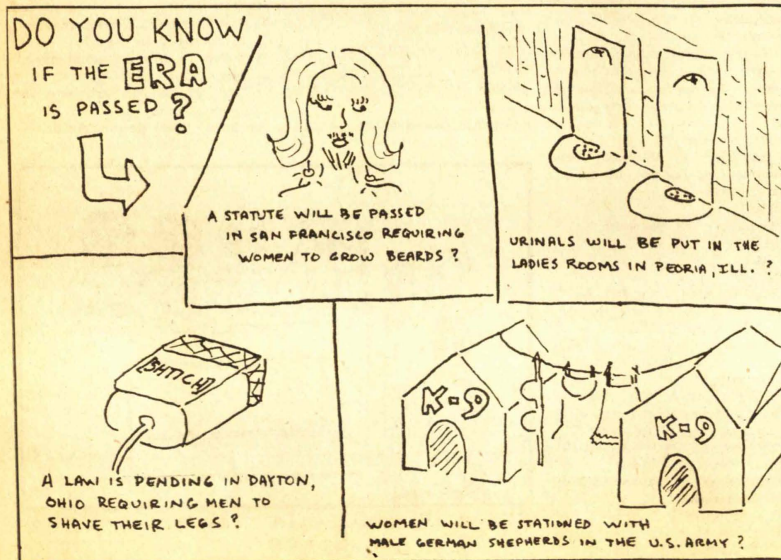 DO YOU KNOW
IF THE ERA
IS PASSED?
A STATUTE WILL BE PASSED
IN SAN FRANCISCO REQUIRING
WOMEN TO GROW BEARDS?
URINALS WILL BE PUT IN THE
LADIES ROOMS IN PEORIA, ILL.?
A LAW IS PENDING IN DAYTON,
OHIO REQUIRING MEN TO
SHAVE THEIR LEGS?
K-9
K-9
WOMEN WILL BE STATIONED WITH
MALE GERMAN SHEPHERDS IN THE U.S. ARMY?